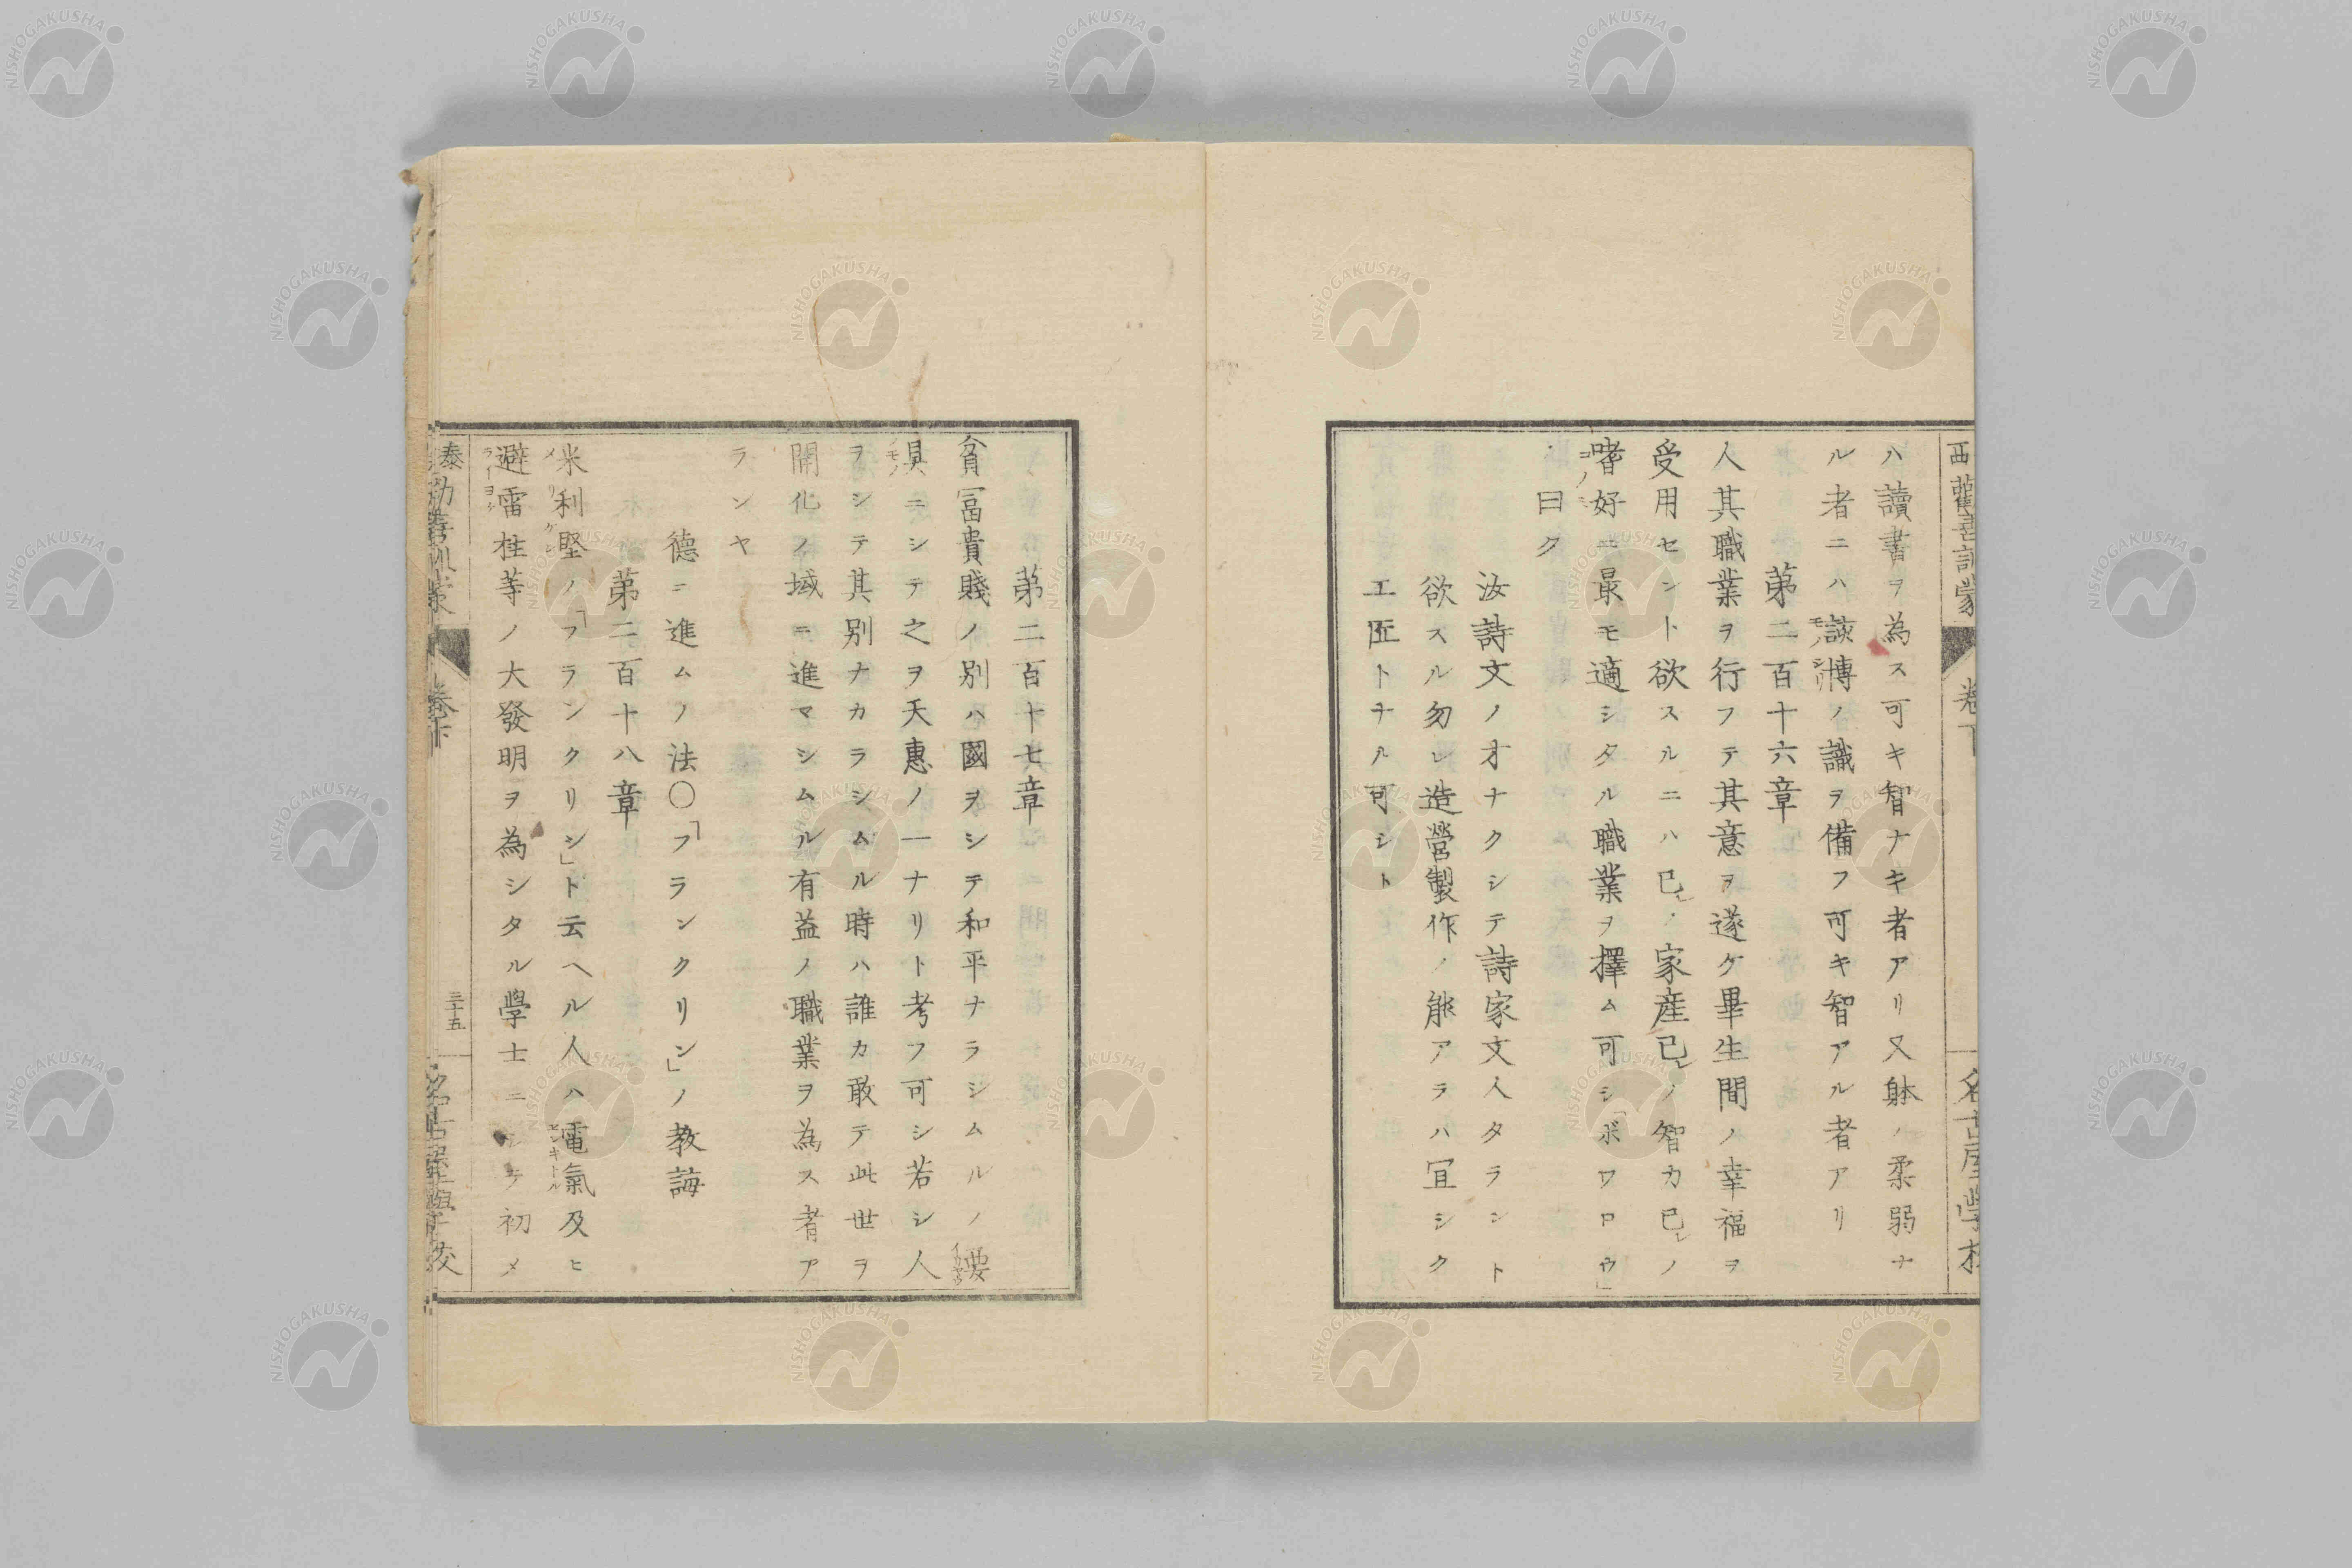 ハ讀書ヲ為ス可キ智ナキ者アリ又躰ノ柔弱ナ
ル者ニハ該博ノ識ヲ備フ可キ智アル者アリ
第二百十六章
人其職業ヲ行フテ其意ヲ遂ケ畢生間ノ幸福ヲ
受用セント欲スルニハ己レノ家産己レノ智力己レノ
嗜好ニ最モ適シタル職業ヲ擇ム可シ「ボワロウ」
曰ク
汝詩文ノ才ナクシテ詩家文人タラント
欲スル勿レ造營製作ノ能アラハ宜シク
工匠トナル可シト
第二百十七章
貧冨貴賤ノ別ハ國ヲシテ和平ナラシムルノ
具ニシテ之ヲ天惠ノ一ナリト考フ可シ若シ人
ヲシテ其別ナカラシムル時ハ誰カ敢テ此世ヲ
開化ノ域ニ進マシムル有益ノ職業ヲ為ス者ア
ランヤ
德ニ進ムノ法〇「フランクリン」ノ教誨
第二百十八章
米利堅ノ「フランクリン」ト云ヘル人ハ電氣及ヒ
避雷柱等ノ大發明ヲ為シタル學士ニシテ初メ
泰西勸善訓蒙
卷下
三十五
名古屋學校
NISHOGAKUSHA